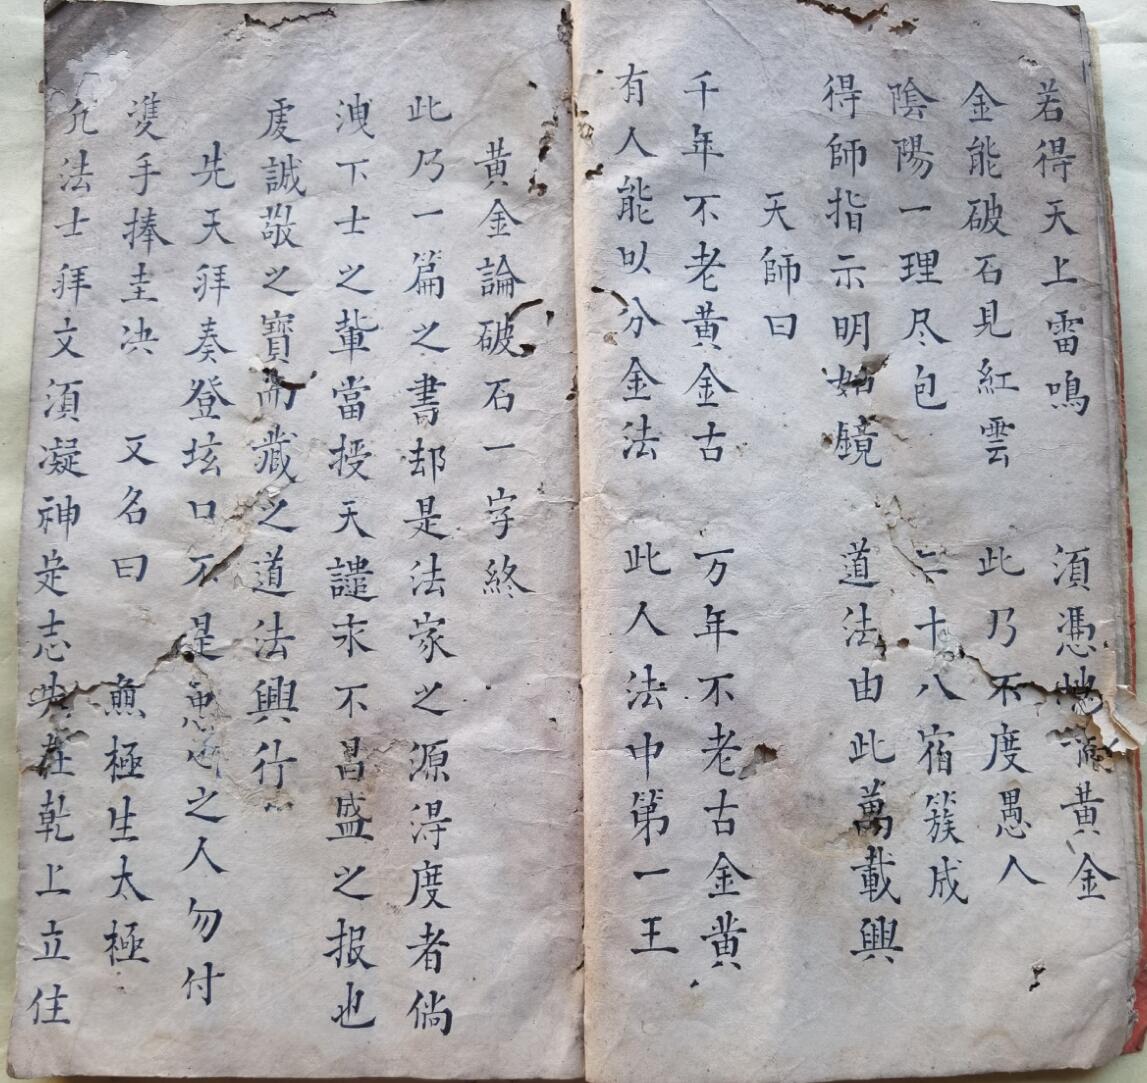 若得天上雷鳴　須憑地
黃金
金能破石見紅雲　此乃不度愚人
陰陽一理尽包　二十八宿簇成
得師指示明如鏡　道法由此萬載興
天師曰
千年不老黃金古　万年不老古金黃
有人能以分金法　此人法中第一王
黃金論破石一字終
此乃一篇之書却是法家之源淂度者倘
洩下士之輩當授天譴求不昌盛之报也
虔誠敬之寶而藏之道法興行
先天拜奏登玹口不是
之人勿付
雙手捧圭决　又名曰　無極生太極
凢法士拜文須凝神定志
在乾上立住